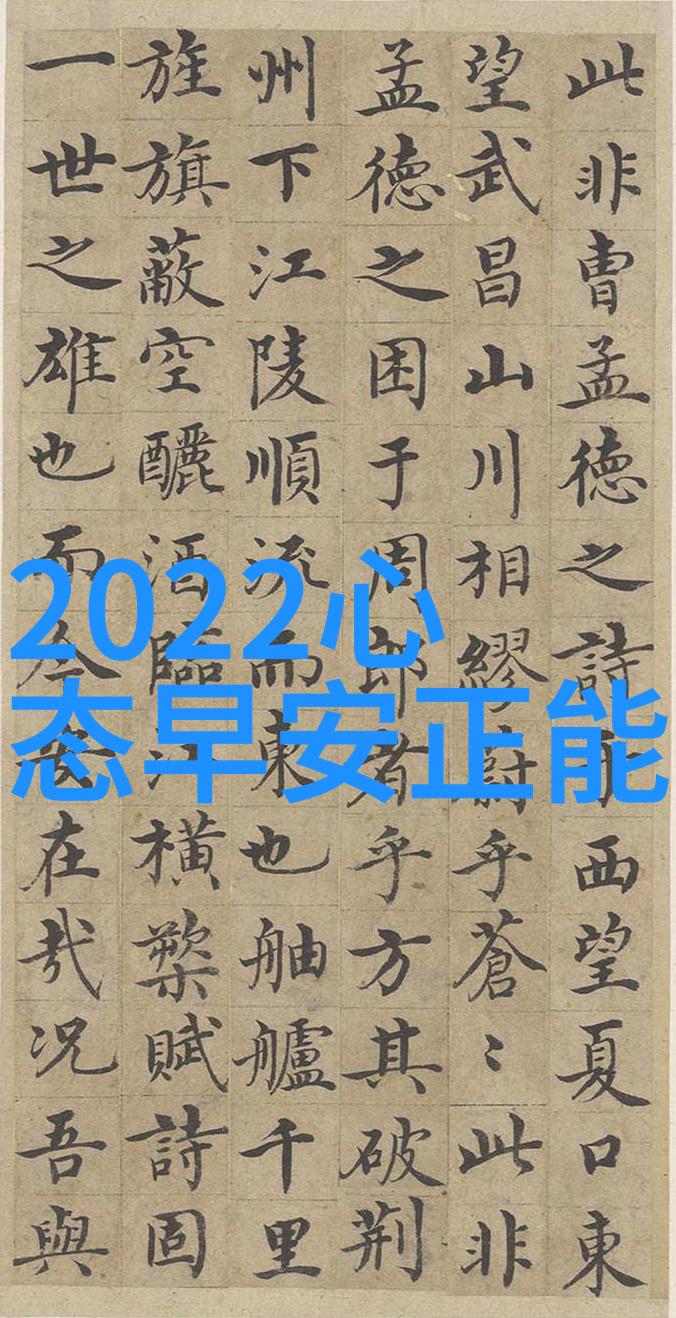 此非曹孟德之詩乎西望夏口東
望武昌山川相繆乎蒼〻此非
孟德之困于周郎者乎方其破荊
州下江陵順流而東也舳艫千里
旌旗蔽空釃酒臨江橫槊賦詩固
一世之雄也而今安在哉况吾與
2022心
态早安正能